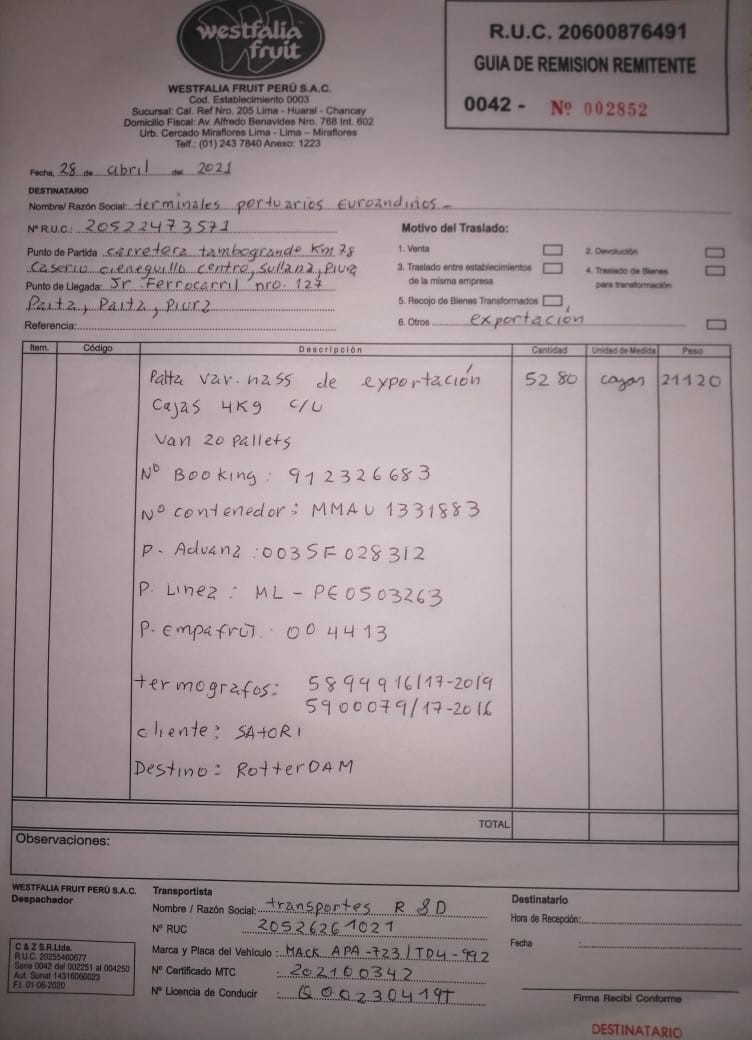 westfalia
fruit
WESTFALIA FRUIT PERÚ S.A.C.
Cod. Establecimiento 0003
Sucursal: Cal. Ref Nro. 205 Lima - Huaral - Chancay
Domicilio Fiscal: Av. Alfredo Benavides Nro. 768 Int. 602
Urb. Cercado Miraflores Lima - Lima – Miraflores
Telf.: (01) 243 7840 Anexo: 1223
R.U.C. 20600876491
GUIA DE REMISION REMITENTE
0042 - Nº 002852
Fecha, 28 de abril del 2021
DESTINATARIO
Nombre/ Razón Social: terminales portuarios Euroandinos -
Nº R.U.C.: 20522473571
Punto de Partida carretera tambogrande Km 78
Caserio cieneguillo centro, Sullana, Piura
Punto de Llegada: Jr Ferrocarril nro. 127
Paita, Paita, Piura
Referencia:
Motivo del Traslado:
1. Venta
2. Devolución
3. Traslado entre establecimientos
de la misma empresa
4. Traslado de Bienes
para transformación
5. Recojo de Bienes Transformados
6. Otros exportación
Item. Código Descripción Cantidad Unidad de Medida Peso
Palta var. hass de exportación 5280 cajas 21120
Cajas 4Kg c/u
Van 20 pallets
Nº Booking: 912326683
Nº contenedor: MMAU 1331883
P. Aduana: 003SF028312
P. Linea: ML - PE0503263
P. Empafrut. 004413
termografos: 5899916/17-2019
5900079/17-2016
cliente: SAtORI
Destino: RotterDAM
TOTAL
Observaciones:
WESTFALIA FRUIT PERÚ S.A.C.
Despachador
C & Z S.R.Ltda.
R.U.C. 20255460677
Serie 0042 del 002251 al 004250
Aut. Sunat 14316060023
F.I. 01-06-2020
Transportista
Nombre / Razón Social: transportes R & D
Nº RUC 20526261021
Marca y Placa del Vehículo: MACK APA-723/TD4-992
Nº Certificado MTC : 202100342
Nº Licencia de Conducir :
Destinatario
Hora de Recepción:
Fecha :
Firma Recibí Conforme
DESTINATARIO